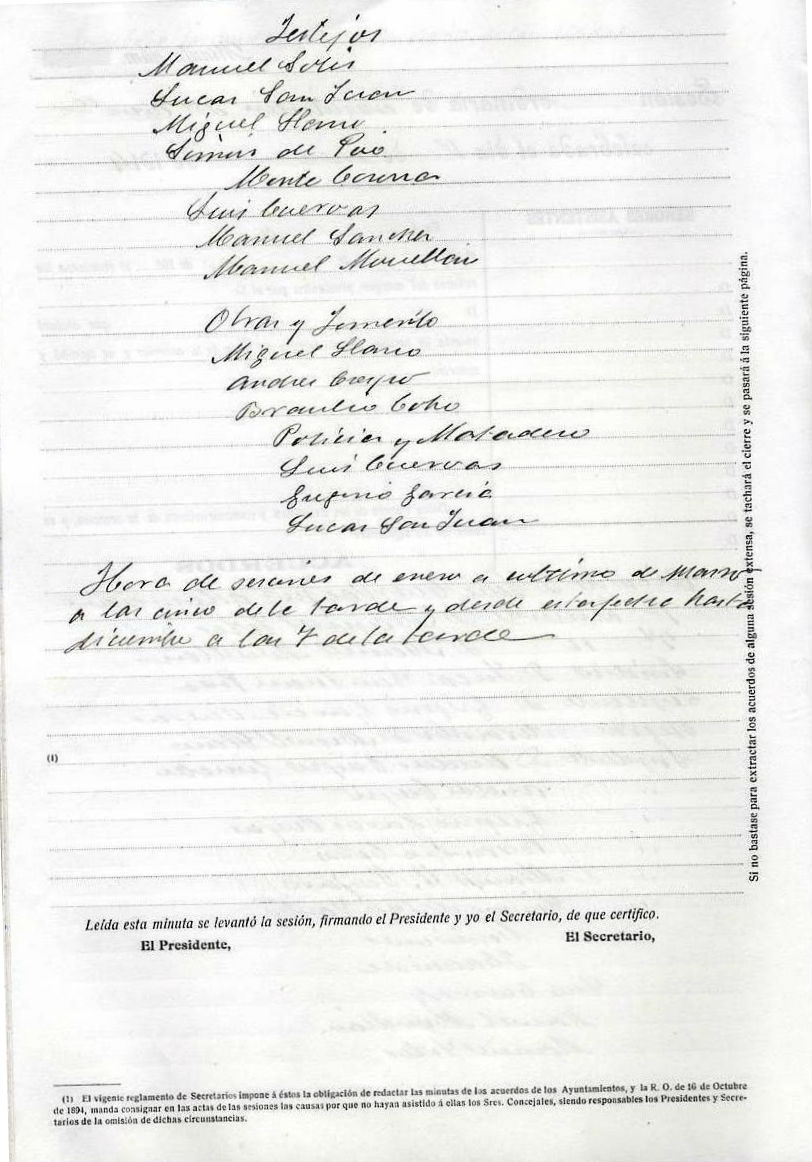 Festejos
Manuel Solis
Lucas San Juan
Miguel Llano
Simón de Poo
Monte Corona
Luis Cuervas
Manuel Sanchez
Manuel Movellan
Obras y Fomento
Miguel Llano
Andres Crespo
Braulio Cobo
Policia y Matadero
Luis Cuervas
Eugenio Garcia
Lucas San Juan
Hora de sesiones de enero a ultimo de Marzo
a las cinco de la tarde y desde esta fecha hasta
diciembre a las 7 de la tarde
(1)
Leída esta minuta se levantó la sesión, firmando el Presidente y yo el Secretario, de que certifico.
El Presidente, El Secretario,
(1) El vigente reglamento de Secretarios impone á éstos la obligación de redactar las minutas de los acuerdos de los Ayuntamientos, y la R. O. de 16 de Octubre
de 1894, manda consignar en las actas de las sesiones las causas por que no hayan asistido á ellas los Sres. Concejales, siendo responsables los Presidentes y Secre-
tarios de la omisión de dichas circunstancias.
Si no bastase para extractar los acuerdos de alguna sesión extensa, se tachará el cierre y se pasará á la siguiente página.